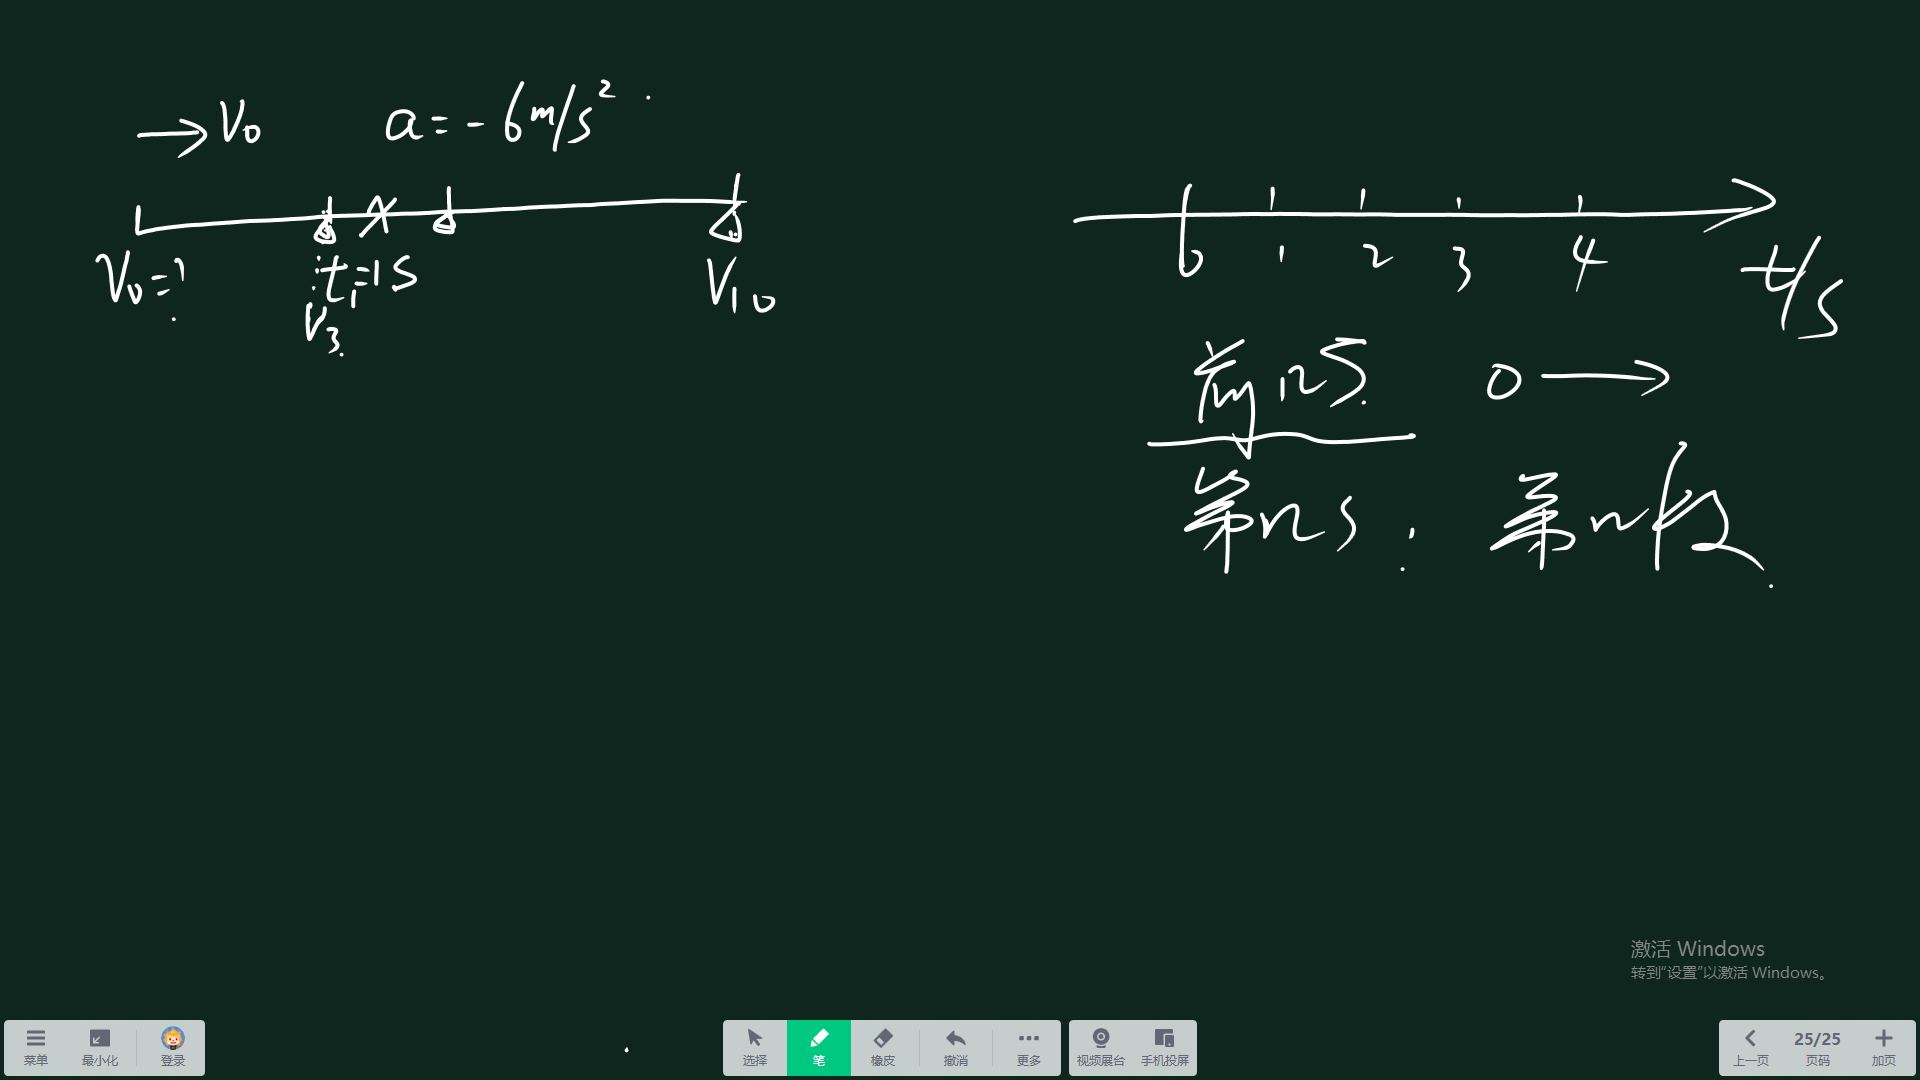 →V₀ a=-6m/s²
V₀=? t₁=1s V₁₀
V₃
0 1 2 3 4 t/s
前ns 0→
第ns. 第n段
激活 Windows
转到“设置”以激活 Windows。
菜单 最小化 登录
选择 笔 橡皮 撤消 更多
视频展台 手机投屏
25/25
上一页 页码 加页